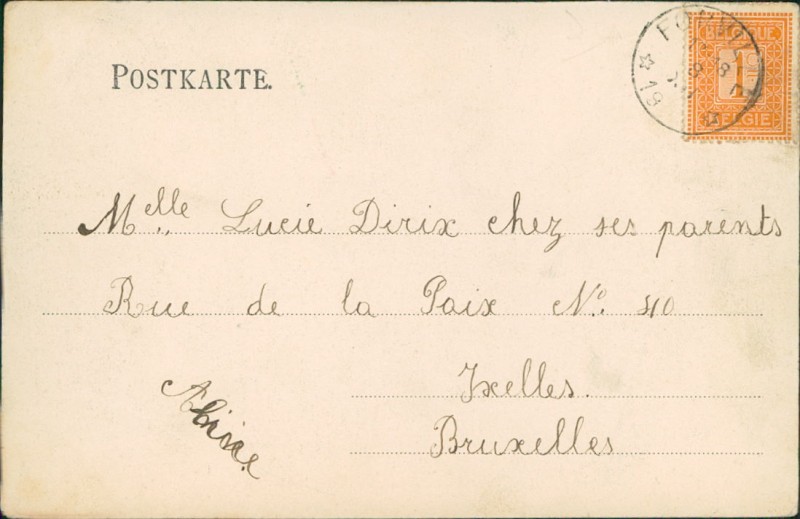 POSTKARTE.
BELGIQUE
1
BELGIE
19
Melle Lucie Dirix chez ses parents
Rue de la Paix No. 40
Ixelles.
Bruxelles